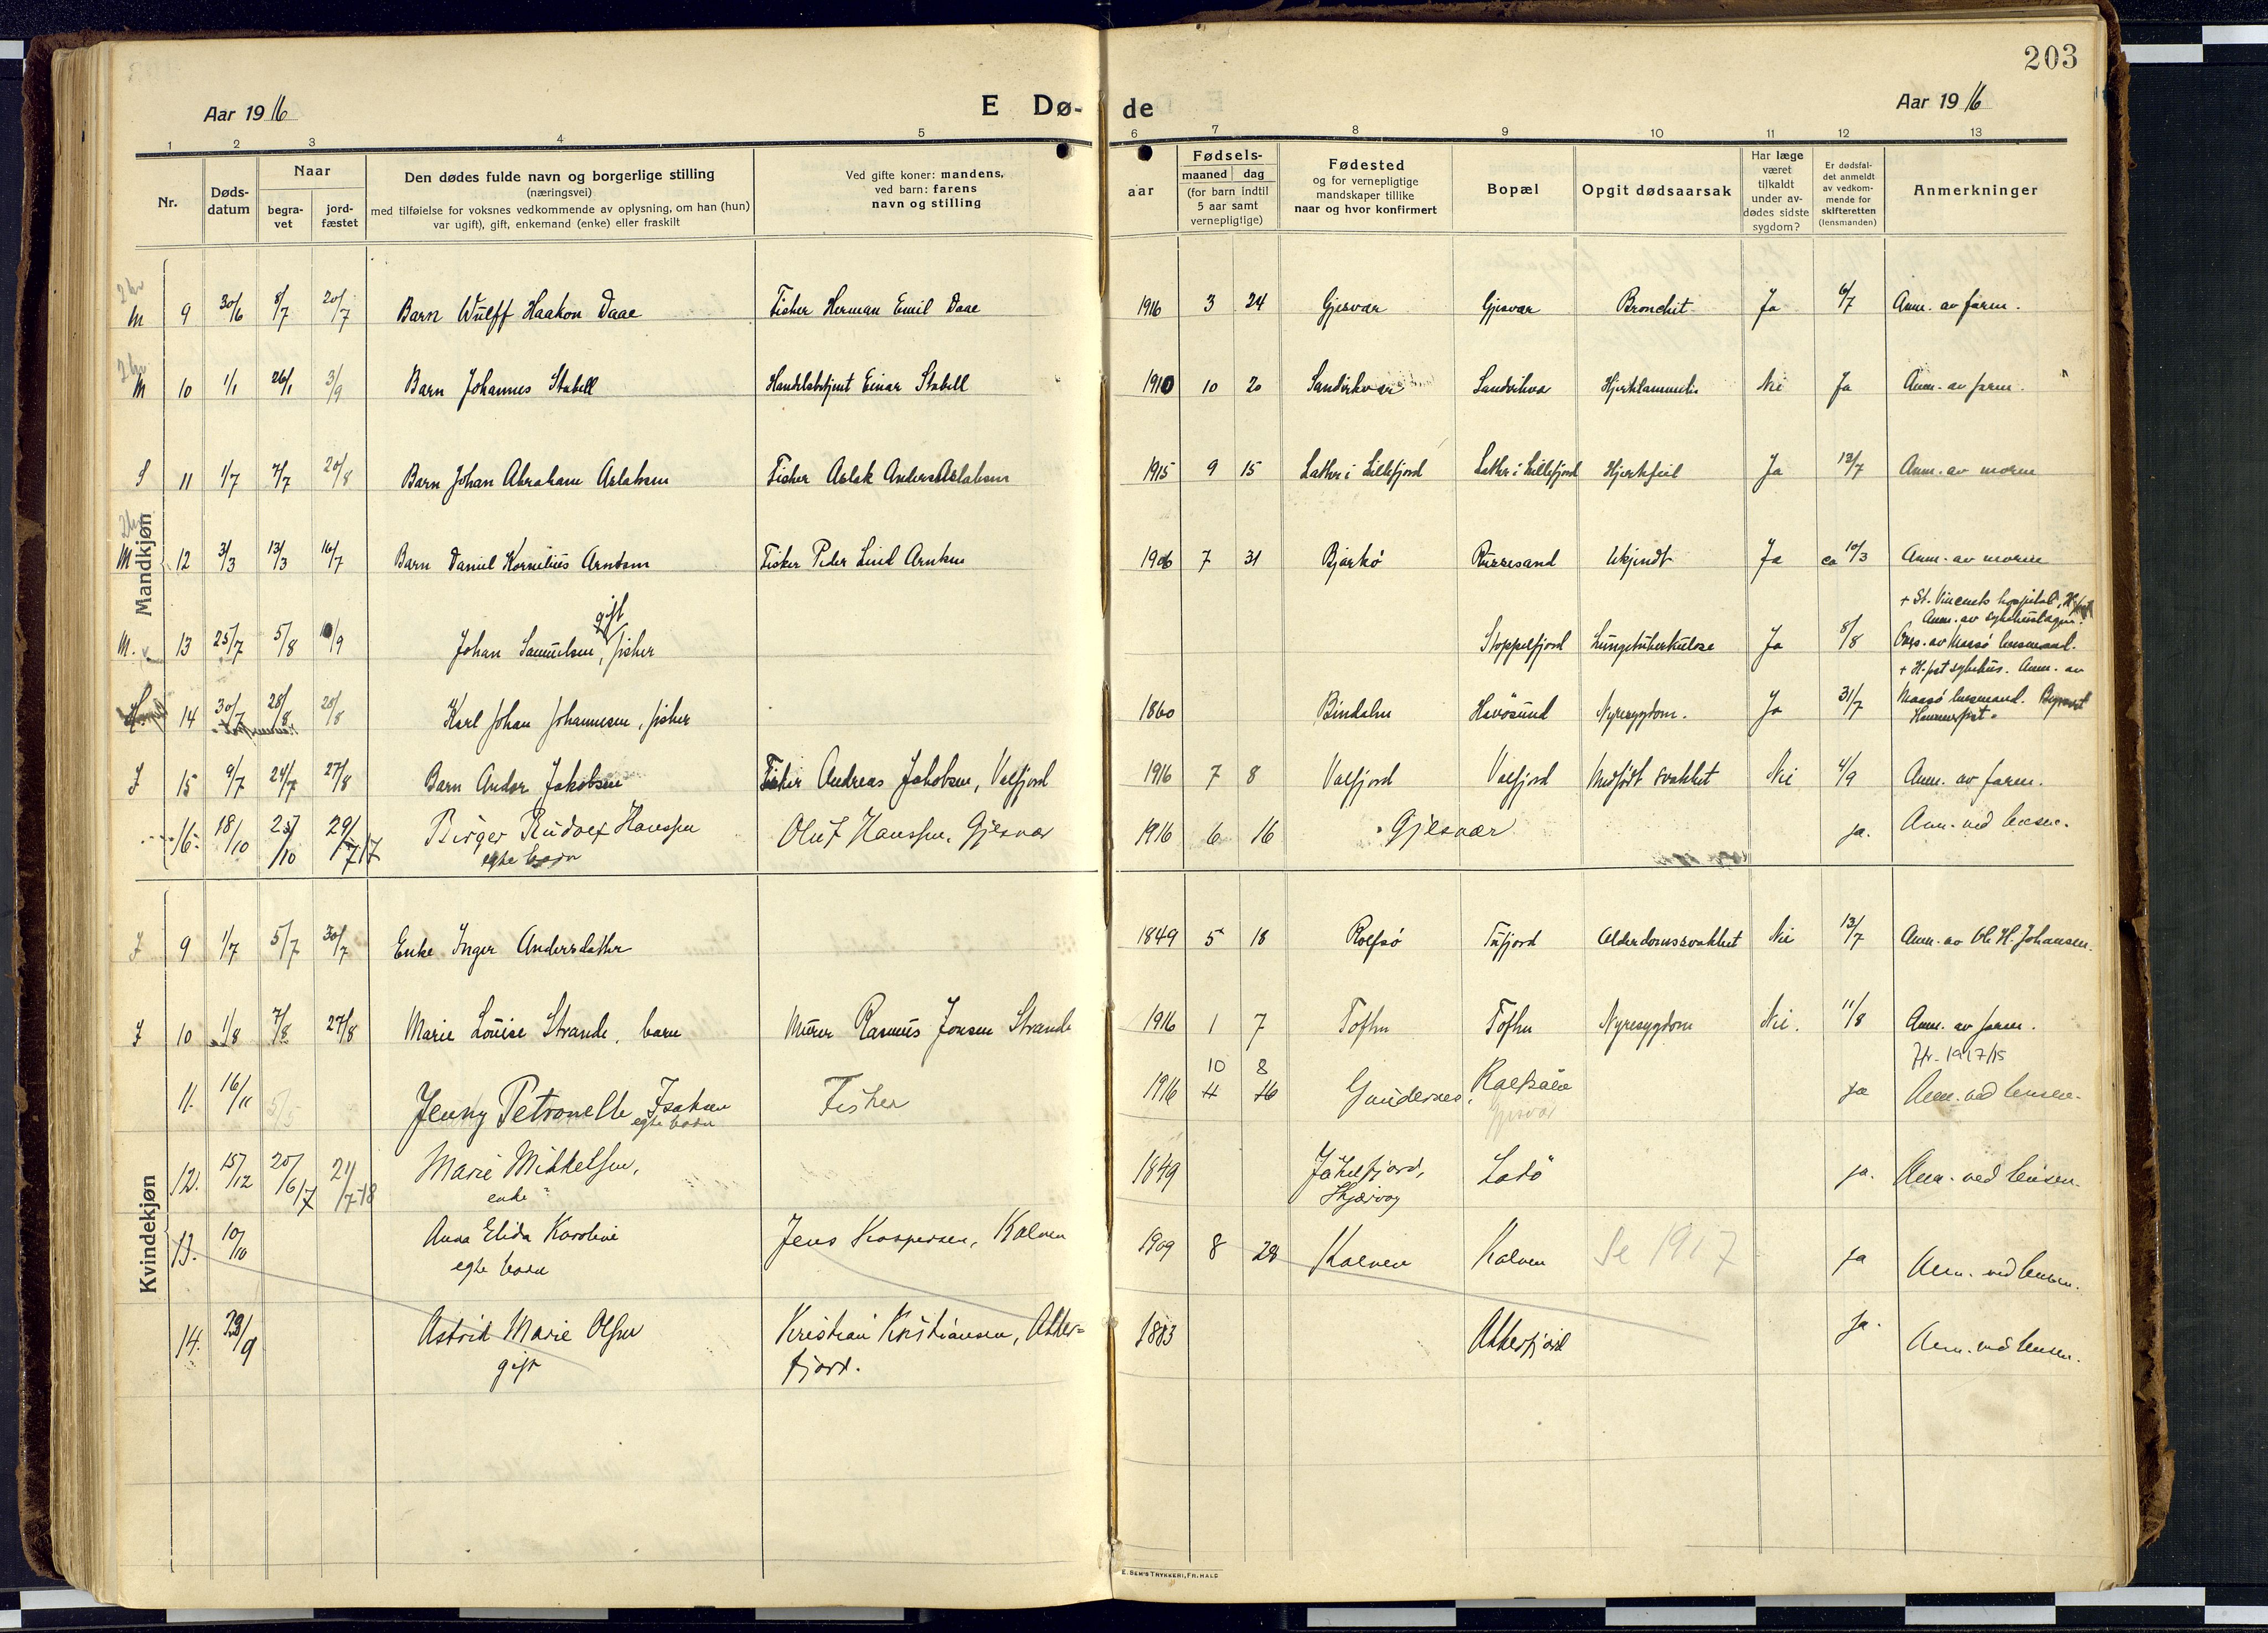 203
Aar 1916 E Dø- de Aar 1916
1 2 3 4 5 6 7 8 9 10 11 12 13
Nr.
Døds-
datum
Naar
begra-
vet
jord-
fæstet
Den dødes fulde navn og borgerlige stilling
(næringsvei)
med tilføielse for voksnes vedkommende av oplysning, om han (hun)
var ugift), gift, enkemand (enke) eller fraskilt
Ved gifte koner: mandens,
ved barn: farens
navn og stilling
Fødsels-
aar
maaned dag
(for barn indtil
5 aar samt
vernepligtige)
Fødested
og for vernepligtige
mandskaper tillike
naar og hvor konfirmert
Bopæl
Opgit dødsaarsak
Har læge
været
tilkaldt
under av-
dødes sidste
sygdom?
Er dødsfal-
det anmeldt
av vedkom-
mende for
skifteretten
(lensmanden)
Anmerkninger
Mandkjøn
M 9 30/6 8/7 20/7 Barn Wulff Haakon Daae Fisker Herman Emil Daae 1916 3 24 Gjesvær Gjesvær Bronchit Ja 6/7 Anm. av faren.
M 10 1/1 26/1 3/9 Barn Johannes Stabell Handelsbetjent Einar Stabell 1910 10 20 Sandvikvær Sandvikvær Nei Ja Anm. av faren.
S 11 1/7 7/7 20/8 Barn Johan Abraham Aslaksen Fisker Aslak Anders Aslaksen 1915 9 15 Latter i Lillefjord Latter i Lillefjord Hjertefeil Ja 13/7 Anm. av moren
M 12 3/3 13/3 16/7 Barn Daniel Kornelius Arntsen Fisker Peder Lind Arntsen 1906 7 31 Bjarkö Russesand Ukjendt Ja ca 10/3 Anm. av moren
M. 13 25/7 5/8 /9 Johan Samuelsen, gift fisher Stoppelfjord Lungetuberkulose Ja 8/8 + St. Vincents hospital, H.fest
Anm. av sykehuslægen.
av Maasö lensmand.
14 30/7 28/8 28/8 Karl Johan Johannesen, fisher 1860 Bindalen Havösund Nyresygdom. Ja 31/7 + H.fest sykehus. Anm. av
Maasö lensmand.
Hammerfest.
J 15 9/7 24/7 27/8 Barn Andor Jakobsen Fisker Andreas Jakobsen, Valfjord 1916 7 8 Valfjord Valfjord Medfödt svakhet Nei 4/9 Anm. av faren.
16. 18/10 25/10 29/7 17 Birger Rudolf Hanssen Oluf Hanssen, Gjesvær 1916 6 16 Gjesvær ja. Anm. ved lensm.
egte barn
Kvindekjøn
J 9 1/7 5/7 30/7 Enke Inger Andersdatter 1849 5 18 Rolfsö Tufjord Alderdomssvakhet Nei 13/7 Anm. av Ole H. Johansen.
J 10 1/8 7/8 27/8 Marie Louise Strande, barn Murer Rasmus Jonsen Strande 1916 1 7 Toften Toften Nyresygdom Nei. 11/8 Anm. av faren.
Jfr. 1917/15
11. 16/11 5/5 Jenny Petronelle Isaksen Fisker 1916 10 8 Gundersnes, ja Anm. ved lensm.
egte barn
4 16 Gjesvær
12. 15/12 20/6 17 21/7-18 Marie Mikkelsen, 1849 Jökelfjord, Ladö ja. Anm. ved lensm.
enke
Skjærvøy
13. 10/10 Anna Elida Karoline Jens Kaspersen, Kalven 1909 8 28 Kalven Kalven Se 1917 ja Anm. ved lensm.
egte barn
14. 23/9 Astrid Marie Olsen Kristian Kristiansen, Akker- 1883 Akkerfjord ja. Anm. ved lensm.
gift fjord.
E. SEM'S TRYKKERI, FR.HALD